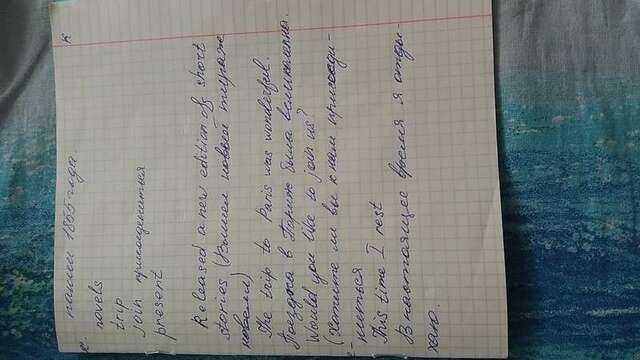 пании 1855 года.
к
с.
novels
trip
join присоединиться
present
Released a new edition of short
stories (Вышел новый тираж
новелл)
The trip to Paris was wonderful.
Поездка в Париж была великолепна.
Would you like to join us?
(Хотите ли вы к нам присоеди-
ниться
This time I rest
В настоящее время я отды-
хаю.